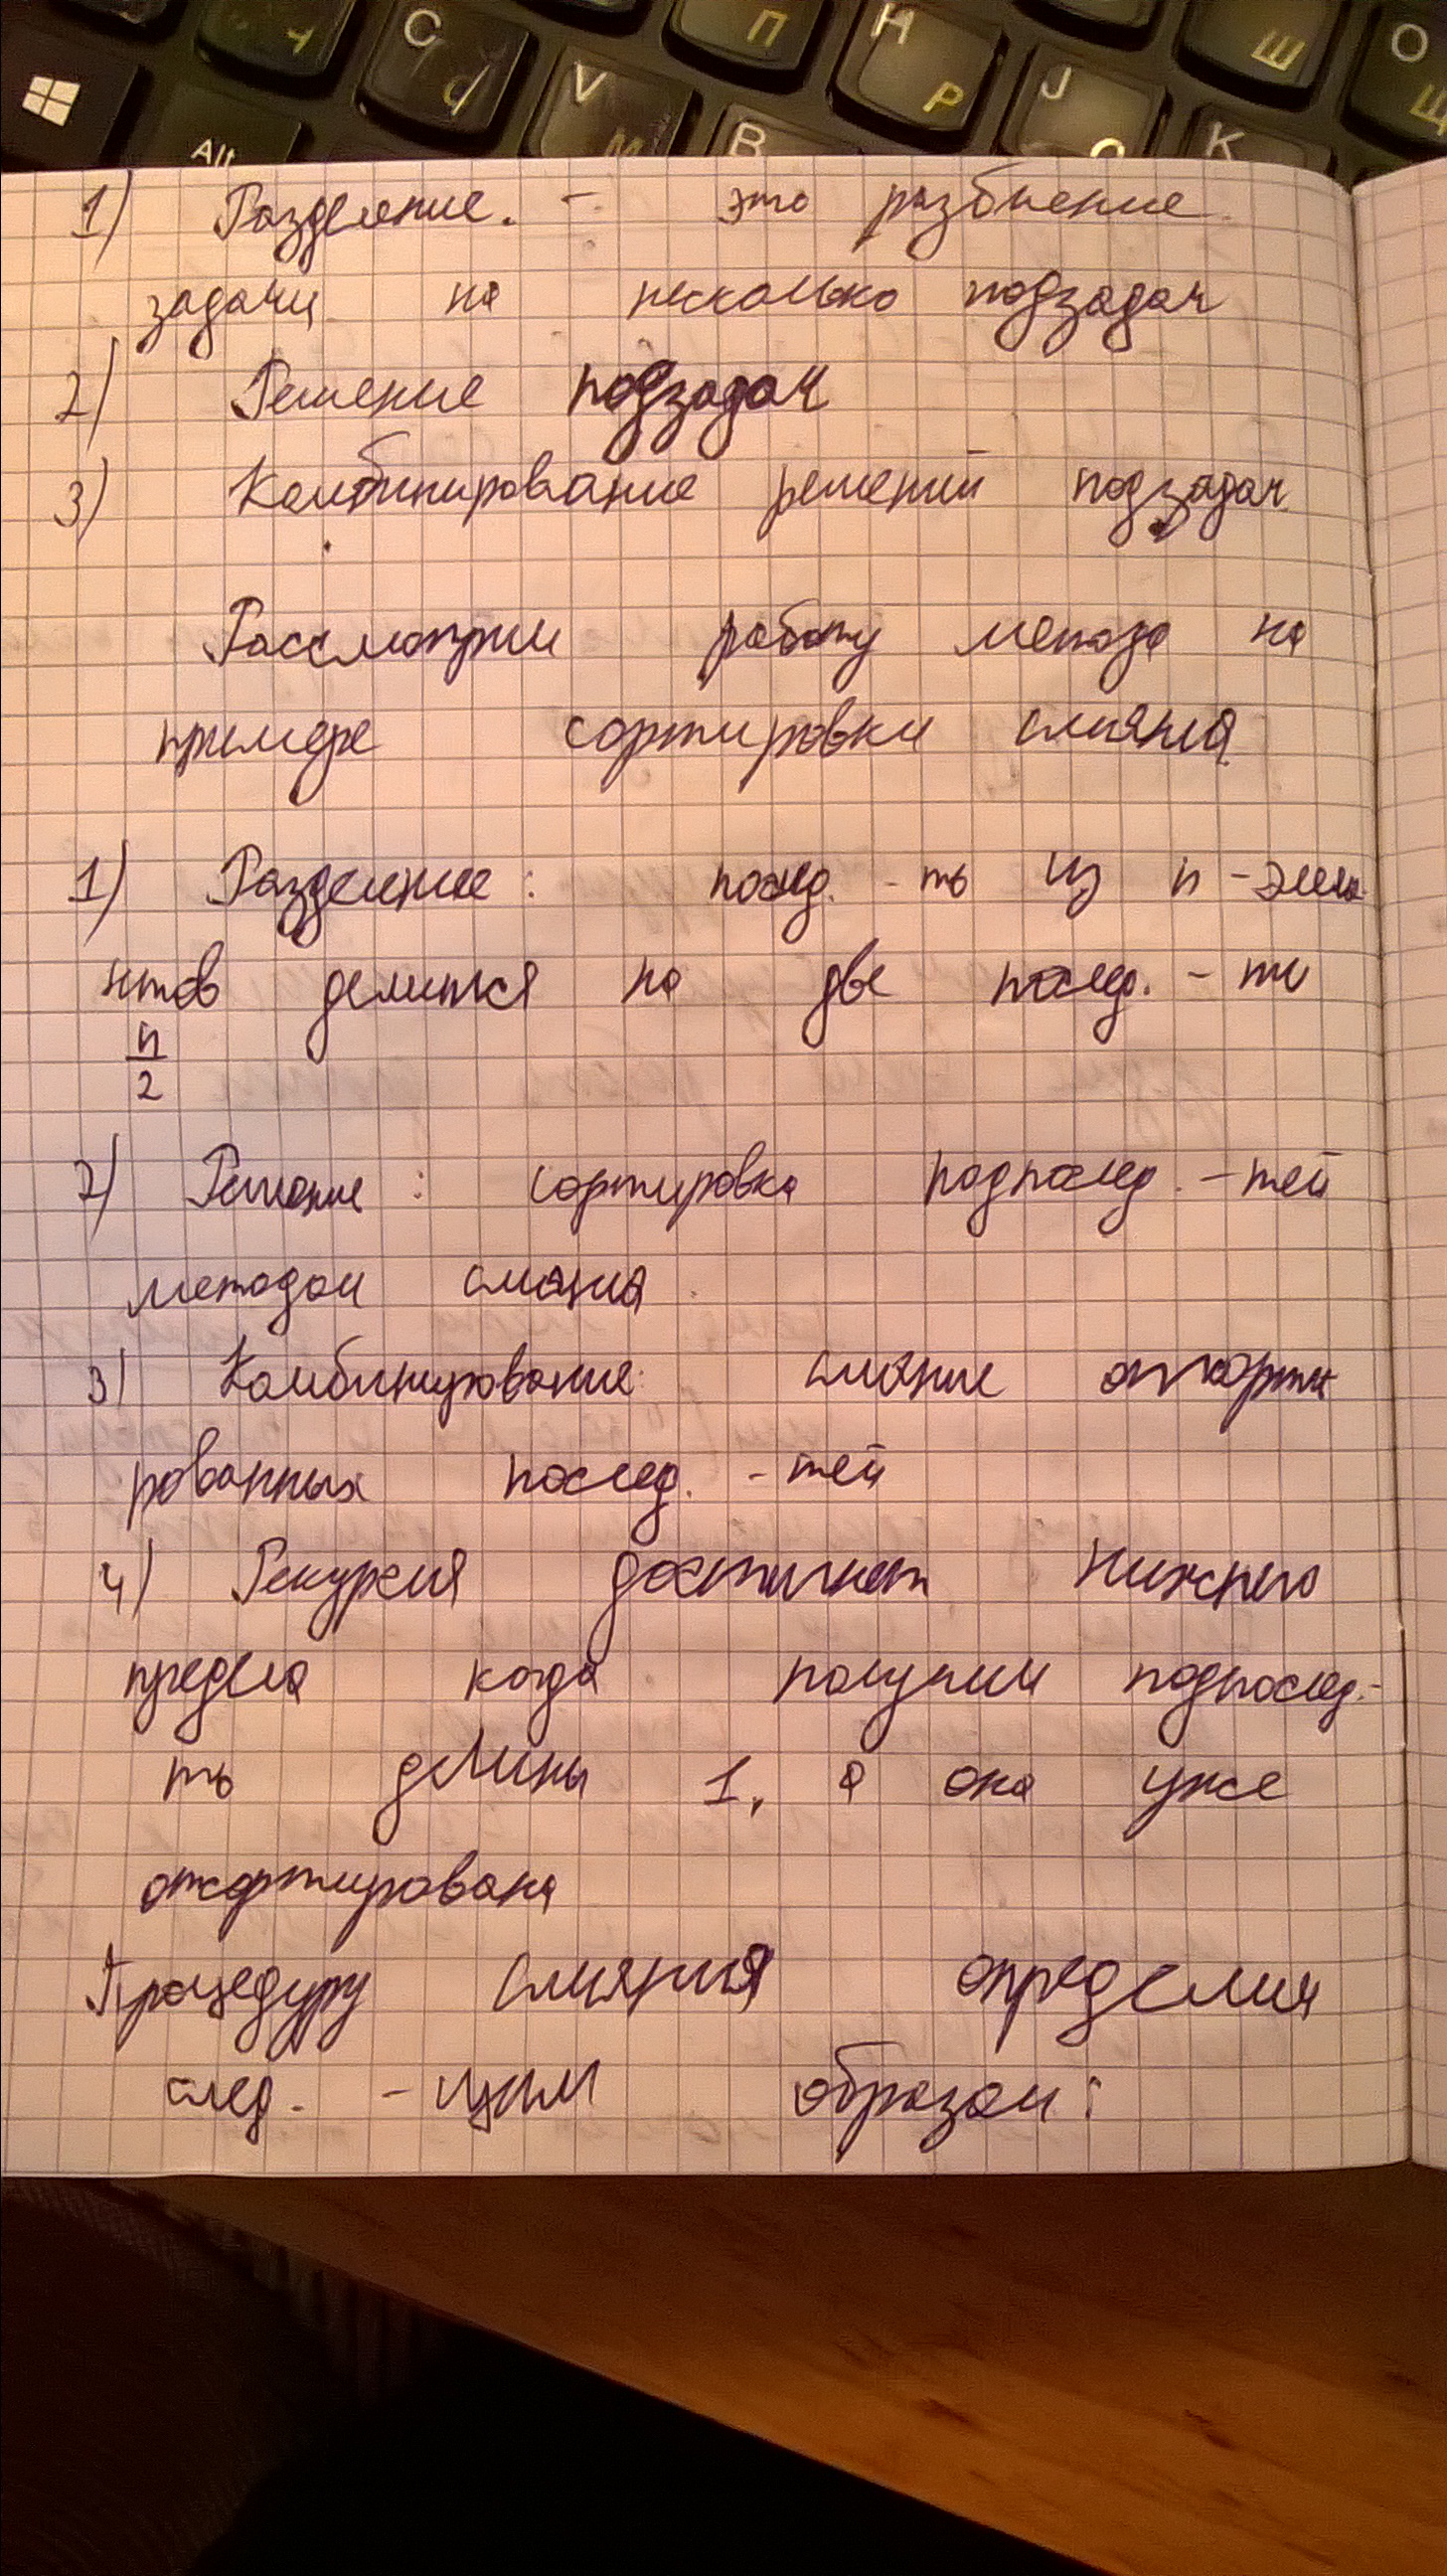 Ч С П Н Ш О
Alt Ч V М B Р J К Щ
1) Разделение. - это разбиение
задачи на несколько подзадач
2) Решение подзадач
3) Комбинирование решений подзадач
Рассмотрим работу метода на
примере сортировки слияния
1) Разделение: послед. - ть из n - элеме
нтов делится на две послед. - ти
n/2
2) Решение: сортировка подпослед. - тей
методом слияния
3) Комбинирование: слияние отсорти
рованных послед. - тей
4) Рекурсия достигнет нижнего
предела когда получим подпослед.-
ть длины 1, а она уже
отсортирована
Процедуру слияния определим
след. - щим образом: